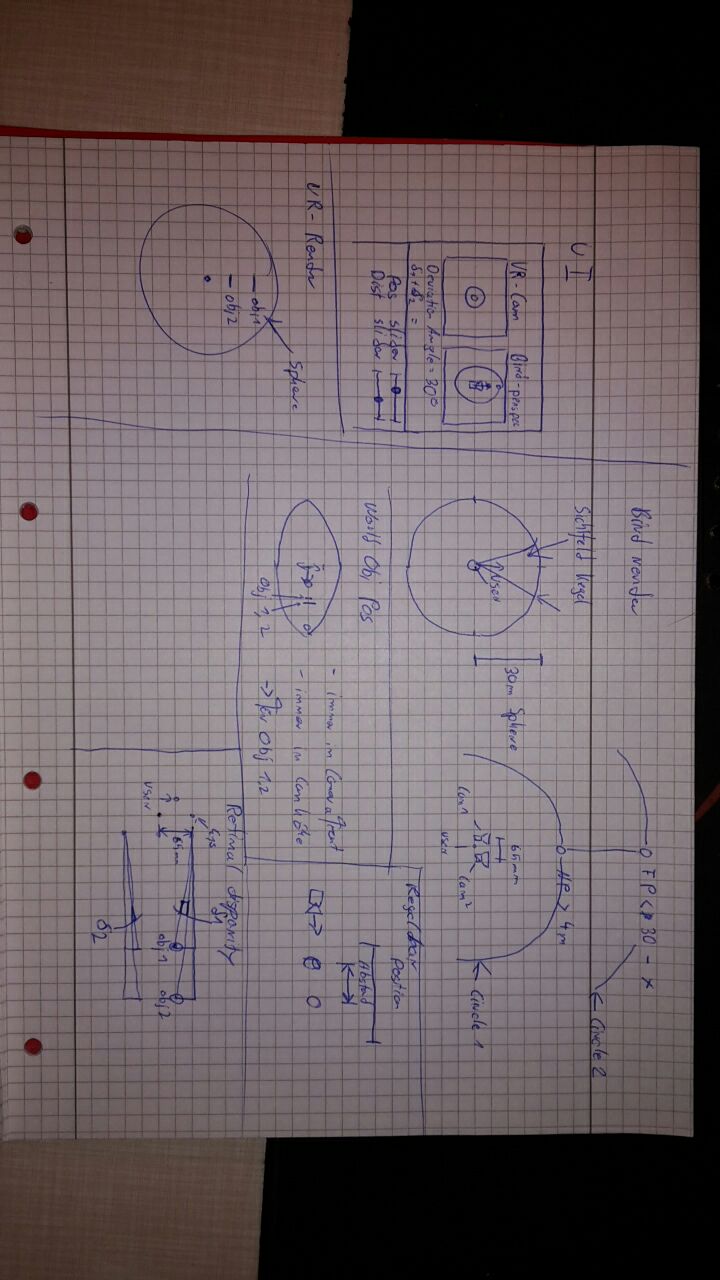 UI
VR-Cam
Bird-perspec
Deviation Angle = 30°
δ1 + δ2 =
Pos slider
Dist slider
VR-Render
Sphere
obj1
obj2
Bird render
Sichtfeld Kegel
User
30m Sphere
FP < 30 - x
Circle 2
NP > 4m
65mm
Cam1
Cam2
user
Circle 1
World Obj Pos
- immer in Camera front
- immer in Cam höhe
-> für Obj 1,2
Obj 1,2
Regelbar
Position
Abstad
Retinal disparity
δ1
Eye
65mm
user
obj1
obj2
δ2